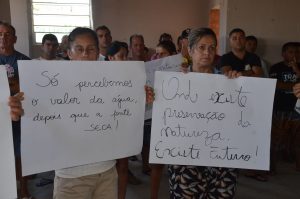 Só percebemos
o valor da água,
depois que a fonte
SECA!
Ond existe
preservação da
natureza.
Existe